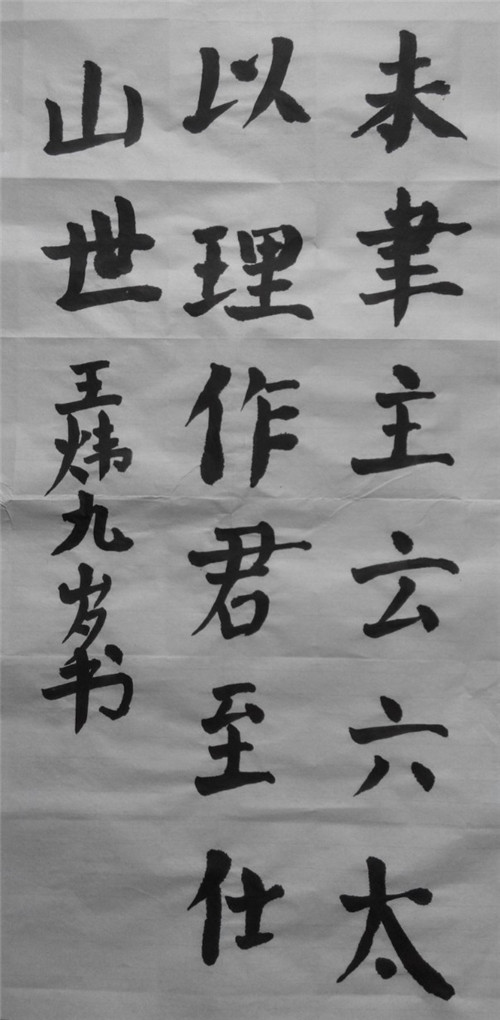 未聿主玄六太
以理作君至仕
山世
王炜九岁书